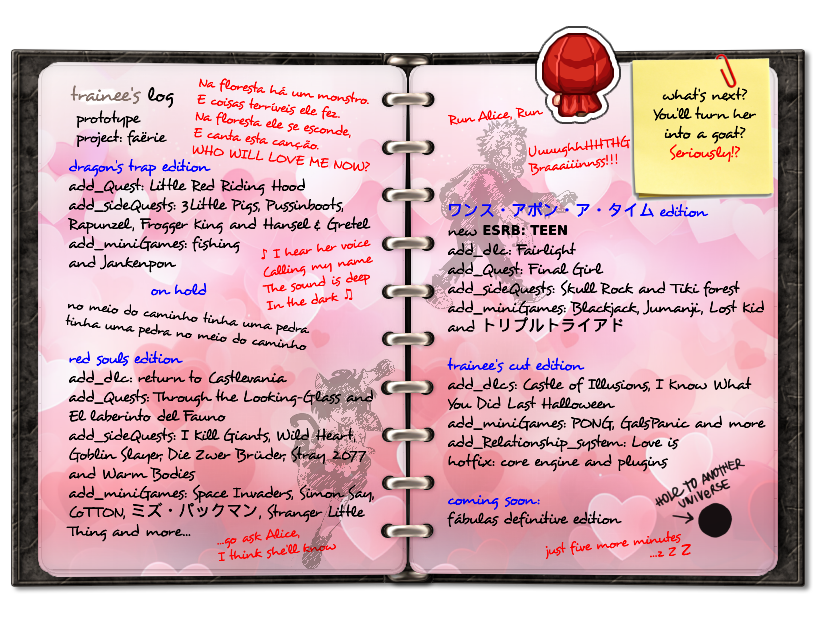 trainee's log
prototype
project: faërie
Na floresta há um monstro.
E coisas terríveis ele fez.
Na floresta ele se esconde,
E canta esta canção.
WHO WILL LOVE ME NOW?
dragon's trap edition
add_Quest: Little Red Riding Hood
add_sideQuests: 3Little Pigs, Pussinboots,
Rapunzel, Frogger King and Hansel & Gretel
add_miniGames: fishing
and Jankenpon
♪ I hear her voice
Calling my name
The sound is deep
In the dark ♫
on hold
no meio do caminho tinha uma pedra
tinha uma pedra no meio do caminho
red souls edition
add_dlc: return to Castlevania
add_Quests: Through the Looking-Glass and
El laberinto del Fauno
add_sideQuests: I Kill Giants, Wild Heart,
Goblin Slayer, Die Zwer Brüder, Stray 2077
and Warm Bodies
add_miniGames: Space Invaders, Simon Say,
CoTTON, ミズ・パックマン, Stranger Little
Thing and more...
...go ask Alice,
I think she'll know
Run Alice, Run
UuuughHHTHG
Braaaiiinnss!!!
what's next?
You'll turn her
into a goat?
Seriously!?
ワンス・アポン・ア・タイム edition
new ESRB: TEEN
add_dlc: Fairlight
add_Quest: Final Girl
add_sideQuests: Skull Rock and Tiki forest
add_miniGames: Blackjack, Jumanji, Lost Kid
and トリプルトライアド
trainee's cut edition
add_dlcs: Castle of Illusions, I Know What
You Did Last Halloween
add_miniGames: PONG, GalsPanic and more
add_Relationship_system: Love is
hotfix: core engine and plugins
HOLE TO ANOTHER
UNIVERSE
coming soon:
fábulas definitive edition
just five more minutes
...z Z Z